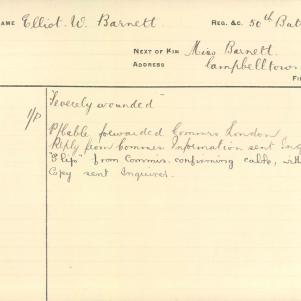 NAME Elliot. W. Barnett. REG. &C. 50th Bat
NEXT OF KIN Miss Barnett.
ADDRESS Campbelltown
FI
"Severely wounded"
1/P P/Cable forwarded Commrs London
Reply from Commrs Information sent Enq
"Slip" from Commrs. confirming cable, with
Copy sent Enquirer.